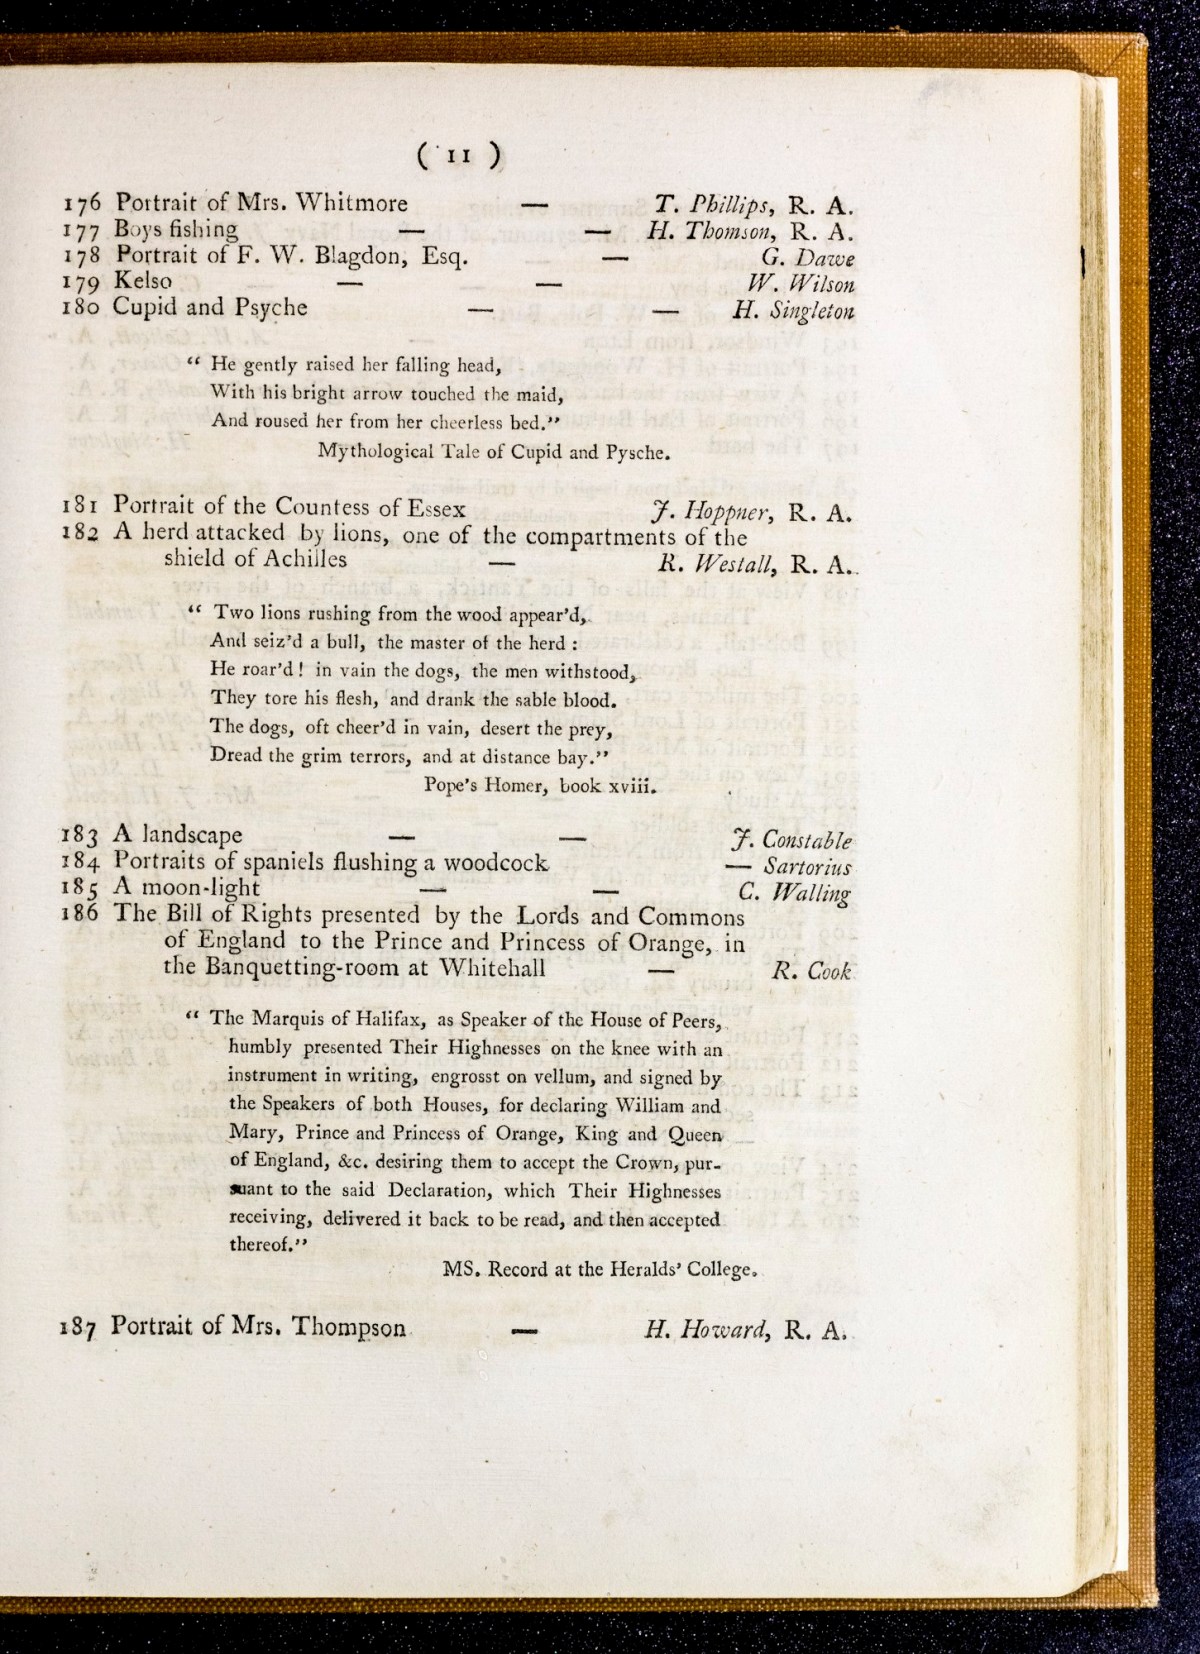 ( 11 )
176 Portrait of Mrs. Whitmore — T. Phillips, R. A.
177 Boys fishing — — H. Thomson, R. A.
178 Portrait of F. W. Blagdon, Esq. — G. Dawe
179 Kelso — — W. Wilson
180 Cupid and Psyche — — H. Singleton
“ He gently raised her falling head,
With his bright arrow touched the maid,
And roused her from her cheerless bed.”
Mythological Tale of Cupid and Pysche.
181 Portrait of the Countess of Essex J. Hoppner, R. A.
182 A herd attacked by lions, one of the compartments of the
shield of Achilles — R. Westall, R. A.
“ Two lions rushing from the wood appear’d,
And seiz’d a bull, the master of the herd :
He roar’d! in vain the dogs, the men withstood,
They tore his flesh, and drank the sable blood.
The dogs, oft cheer’d in vain, desert the prey,
Dread the grim terrors, and at distance bay.”
Pope’s Homer, book xviii.
183 A landscape — — J. Constable
184 Portraits of spaniels flushing a woodcock — Sartorius
185 A moon-light — — C. Walling
186 The Bill of Rights presented by the Lords and Commons
of England to the Prince and Princess of Orange, in
the Banquetting-room at Whitehall — R. Cook
“ The Marquis of Halifax, as Speaker of the House of Peers,
humbly presented Their Highnesses on the knee with an
instrument in writing, engrosst on vellum, and signed by
the Speakers of both Houses, for declaring William and
Mary, Prince and Princess of Orange, King and Queen
of England, &c. desiring them to accept the Crown, pur-
suant to the said Declaration, which Their Highnesses
receiving, delivered it back to be read, and then accepted
thereof.”
MS. Record at the Heralds’ College.
187 Portrait of Mrs. Thompson — H. Howard, R. A.